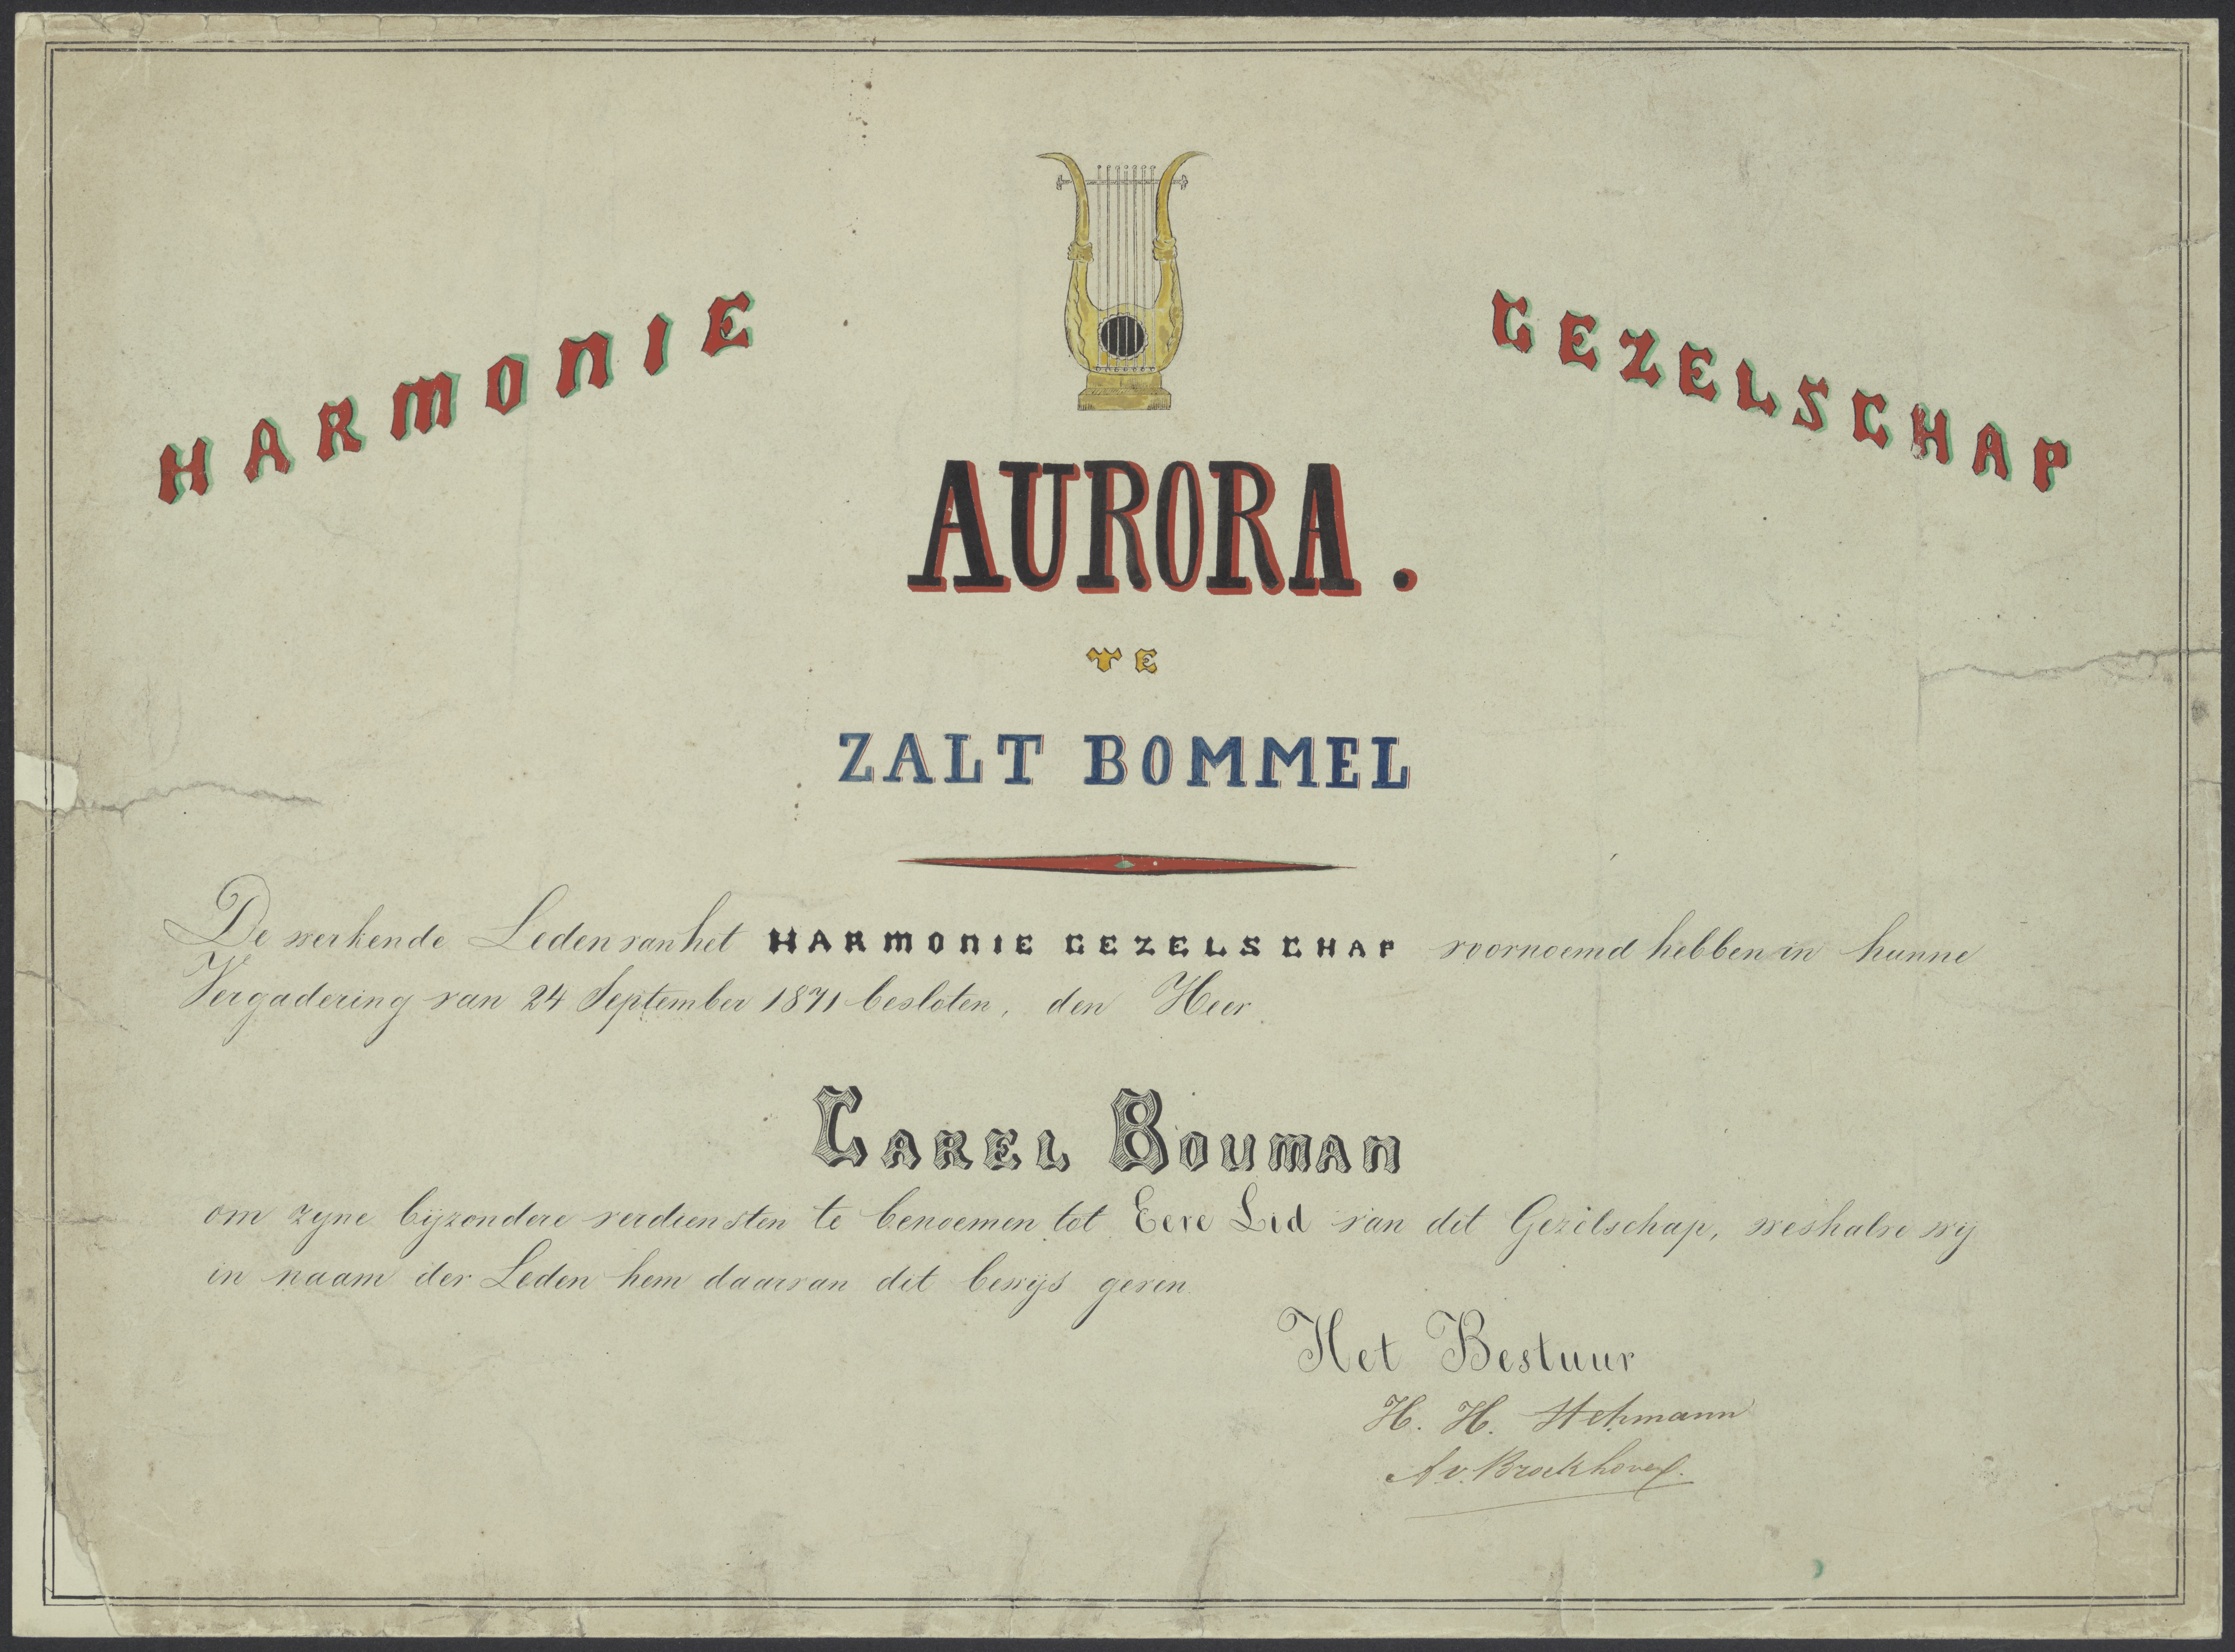 HARMONIE GEZELSCHAP
AURORA.
TE
ZALT BOMMEL
De werkende Leden van het HARMONIE GEZELSCHAP voornoemd hebben in hunne
Vergadering van 24 September 1871 besloten, den Heer
CAREL BOUMAN
om zyne bijzondere verdiensten te benoemen tot Eere Lid van dit Gezelschap, weshalve wy
in naam der Leden hem daarvan dit bewijs geven
Het Bestuur
H. H.
A v. Broekhoven.